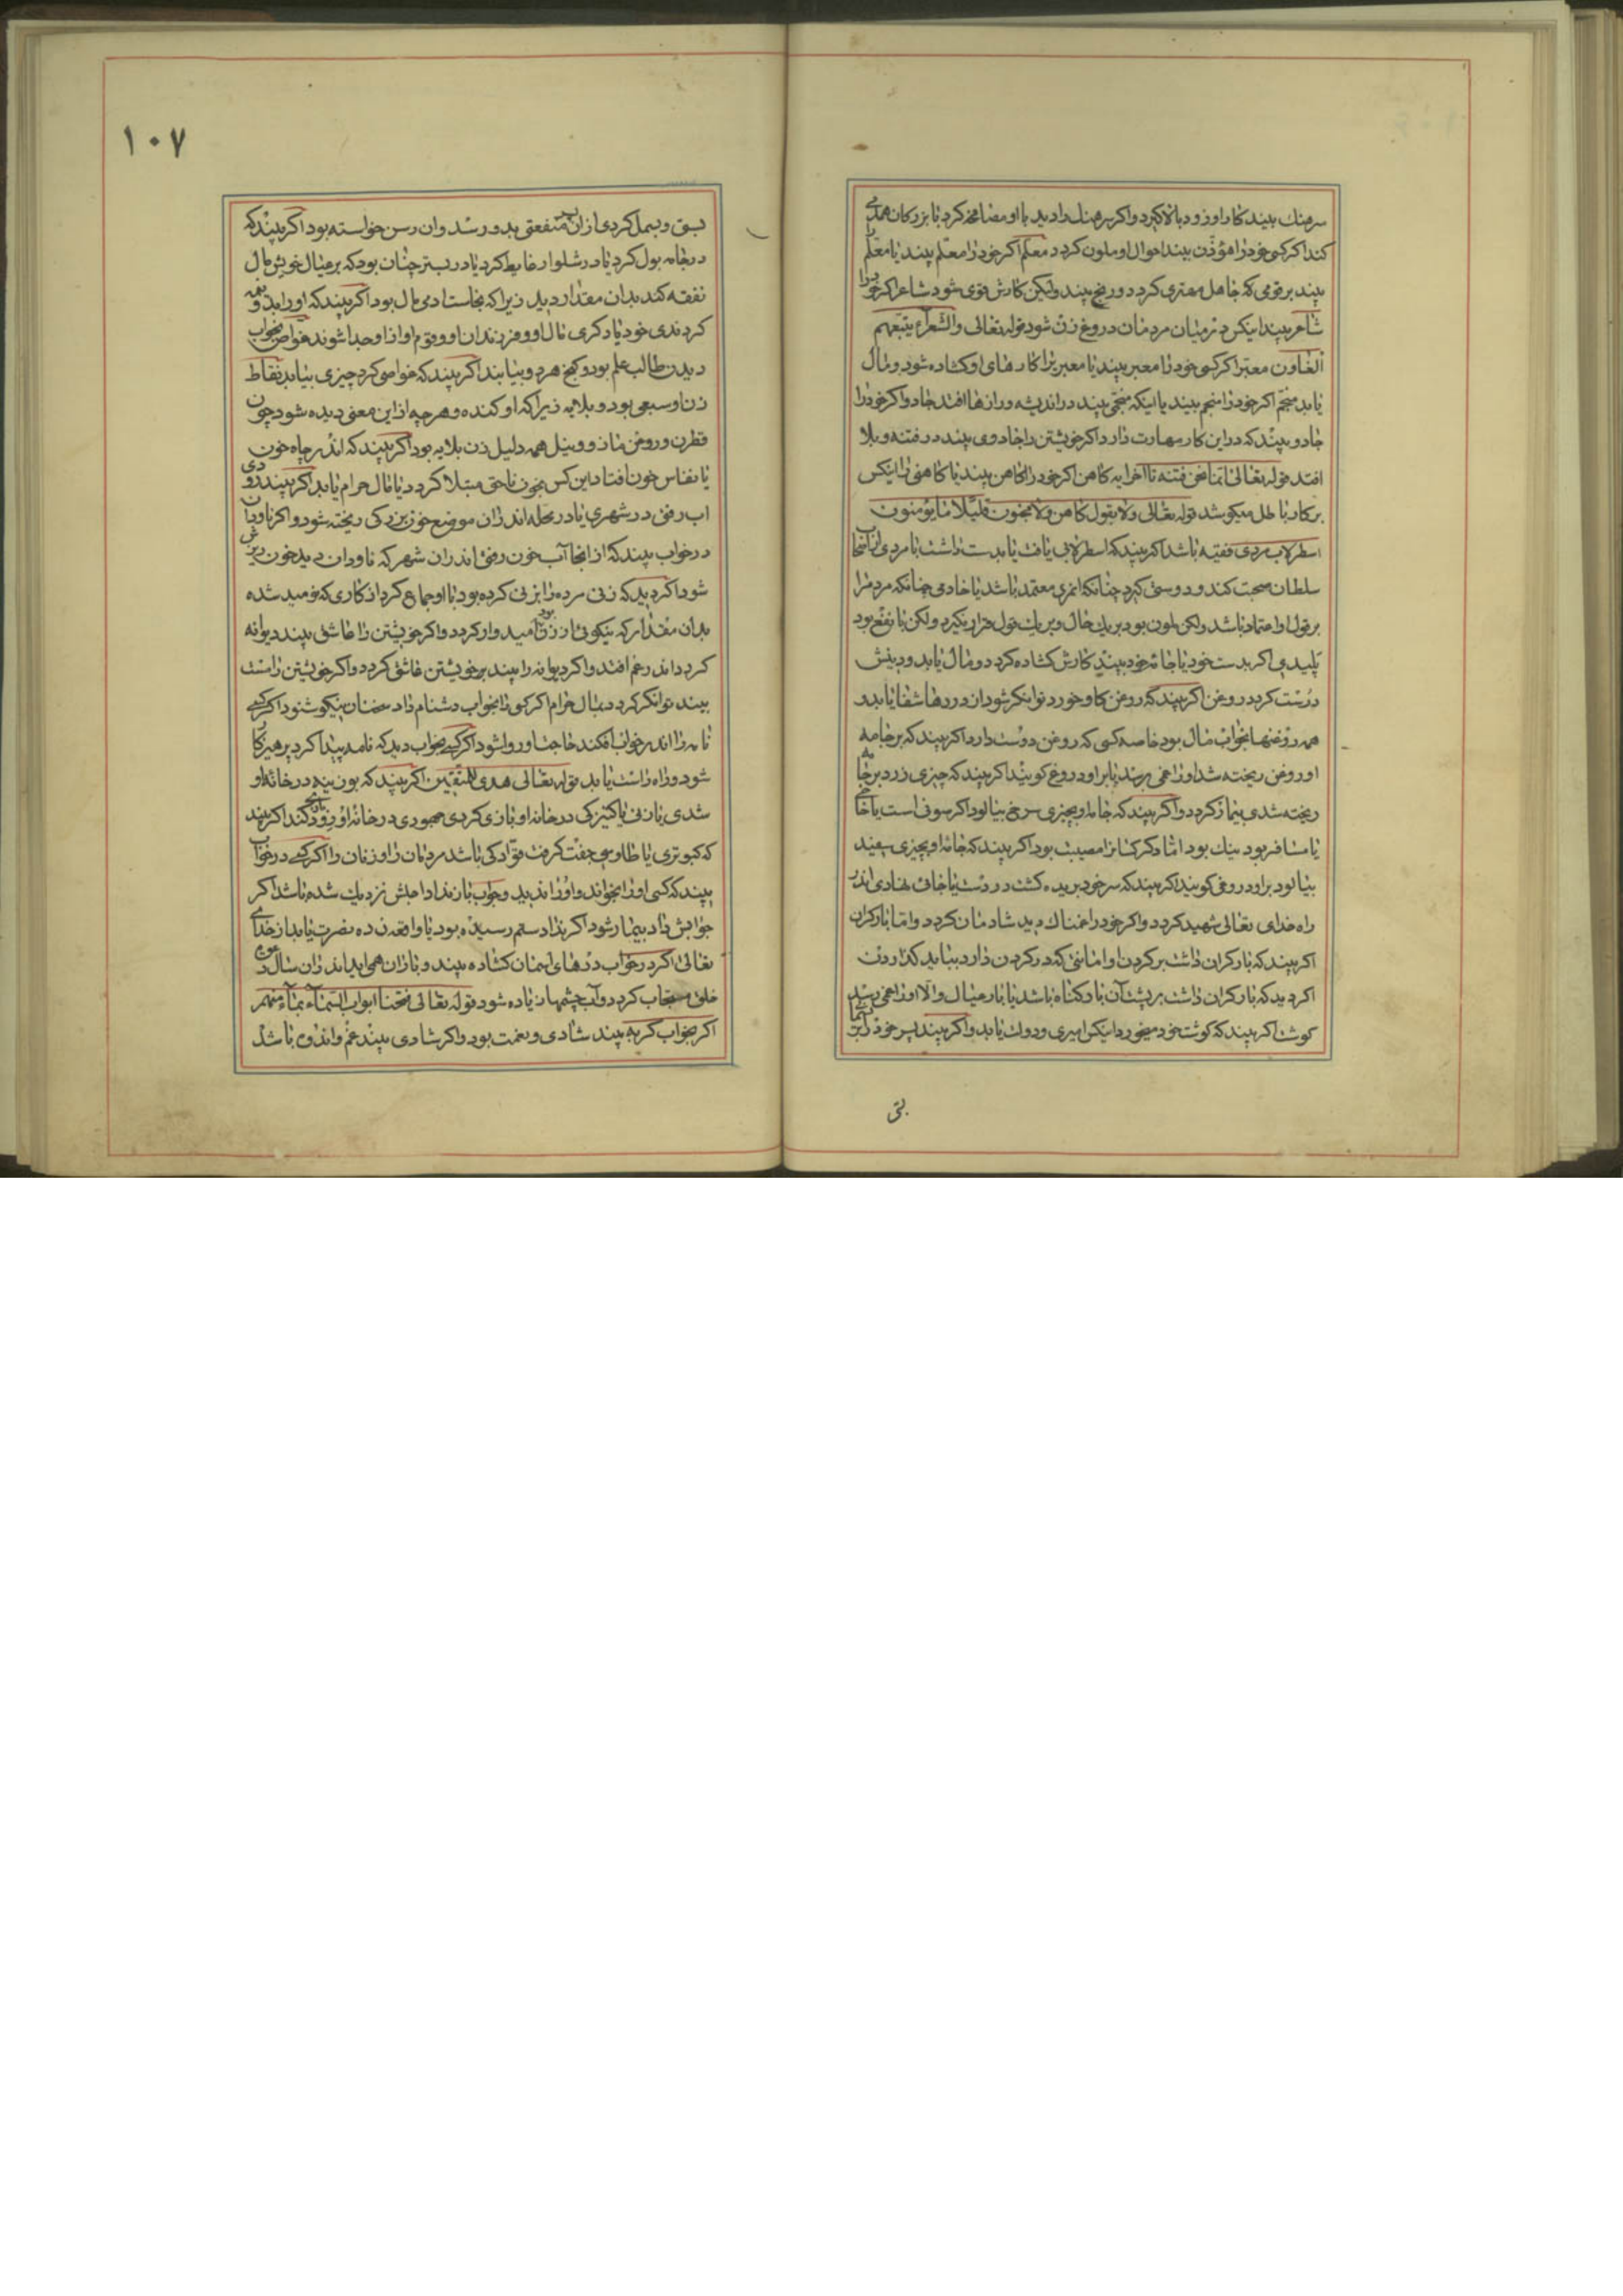 سرهنك بیند كار او زود بالا كیرد واكر سرهنك را دید با او مصافحه كرد با بزركان همدمی
كند اكر كسی خود را مؤذن بیند احوال او ملون كردد معلم اكر خود را معلم بیند یا معلم را
بیند بر قومی كه جاهل مهتری كردد ورنج بیند ولیكن كارش قوی شود شاعر اكر خود را
شاعر بیند اینكس در میان مردمان دروغ زن شود قوله تعالی والشعراء یتبعهم
الغاون معبر اكر كسی خود را معبر بیند یا معبر برا كارهای او كشاده شود ومال
یابد منجم اكر خود را منجم بیند یا اینكه منجمی بیند در اندیشه ورازها افتد جادو اكر خود را
جادو بیند كه در این كار مهارت دارد اكر خویشتن را جادوی بیند در فتنه وبلا
افتد قوله تعالی انما نحن فتنه تا آخر ایه كاهن اكر خود را كاهن بیند یا كاهنی را اینكس
بر كار باطل میكوشد قوله تعالی ولا بقول كاهن ولا مجنون قلیلا ما یؤمنون
اسطرلاب مردی فقیه باشد اكر بیند كه اسطرلابی یافت یا بدست داشت با مردی از اصحاب
سلطان صحبت كند ودوستی كیرد چنانكه امری معتمد باشد یا خادمی چنانكه مردم را
بر قول او اعتماد باشد ولكن ملون بود بر یك حال وبر یك قول قرار نكیرد ولكن با نفع بود
پلیدی اكر بدست خود یا جامه خود بیند كارش كشاده كردد ومال یابد ودینش
درست كردد روغن اكر بیند كه روغن كاو خورد توانكر شود از دردها شفا یابد
همه روغنها بخواب مال بود خاصه كسی كه روغن دوست دارد اكر بیند كه بر جامه
او روغن ریخته شد او را غمی برسد یا بر او دروغ كویند اكر بیند كه چیزی زرد بر جامه
ریخته شدی بیمار كردد واكر بیند كه جامه او بچیزی سرخ بیالود اكر سوفی است یا حاجی
یا مسافر بود نیك بود اما دكر كسانرا مصیبت بود اكر بیند كه جامه او بچیزی سفید
بیالود بر او دروغی كویند اكر بیند كه سر خود بریده كشت در دست یا جائی نهادی اندر
راه خدای تعالی شهید كردد واكر خود را غمناك دید شادمان كردد واما بار كران
اكر بیند كه بار كران داشت بر كردن او امانتی كه در كردن دارد بباید كذاردن
اكر دید كه بار كران داشت بر پشت آن بار كناه باشد یا بار عیال والا او را غمی رسد
كوشت اكر بیند كه كوشت خود میخورد اینكس امیری ودولت یابد واكر بیند پسر خود را بریسمانی
بتی
۱۰۷
ببق وبسمل كردی از ان پسر منفعتی بدو رسد وان رسن خواسته بود اكر بیند كه
در جامه بول كرد یا در شلوار غایط كرد یا در بستر چنان بود كه بر عیال خویش مال
نفقه كند بدان مقدار دید زیرا كه نجاست ادمی مال بود اكر بیند كه او را بدرقه
كردندی خود یا دكری مال او وفرزندان او وقوم او از او جدا شوند غواص بخواب
دیدن طالب علم بود وكنج هر دو بیابند اكر بیند كه غواصی كرد چیزی بیابد نقاط
زناو سبعی بود وبلایه زیرا كه اوكنده وهرچه از این معنی دیده شود چون
قطران وروغن مازو ونیل همه دلیل زن بلایه بود اكر بیند كه اندر چاه خون
یا نفاس خون افتاد این كس بخون ناحق مبتلا كردد یا مال حرام یابد اكر بیند رودی
اب رفتی در شهری یا در محله اندران موضع خون بزركی ریخته شود واكر ناودان
در خواب بیند كه از انجا آب خون رفتی اندران شهر كه ناودان دید خون ریزش
شود اكر دید كه زنی مرده را بزنی كرده بود با او جماع كرد از كاری كه نومید شده
بدان مقدار كه نیكوئی ان زن بود امیدوار كردد واكر خویشتن را عاشق بیند دیوانه
كردد اندر غم افتد واكر دیوانه را بیند بر خویشتن عاشق كردد واكر خویشتن را مست
بیند توانكر كردد بمال حرام اكر كسی را بخواب دشنام داد سخنان نیكو شنود اكر كسی
نامه را اندر خواب افكند حاجت او روا شود اكر كسی بخواب دید كه نامه پیدا كرد پرهیزكار
شود وراه راست یابد قوله تعالی هدی للمتقین اكر بیند كه بوزینه در خانه او
شدی یا زنی یا كنیزكی در خانه او بازی كردی جهودی در خانه او زود نابكاری كند اكر بیند
كه كبوتری یا طاوسی جفت كرفت قوادكی باشد مردمان را وزنان را اكر كسی در خواب
بیند كه كسی او را بخواند واو را ندید وجواب باز نداد اجلش نزدیك شده باشد اكر
جوابش داد بیمار شود اكر نداد ستم رسیده بود یا واقعه زده نصرت یابد از خدای
تعالی اكر در خواب درهای اسمان كشاده بیند وباران همی اید اندران سال دعوه
خلق مستجاب كردد وآب چشمها زیاده شود قوله تعالی ففتحنا ابواب السماء بماء منهمر
اكر بخواب كریه بیند شادی ونعمت بود واكر شادی بیند غم واندوه باشد